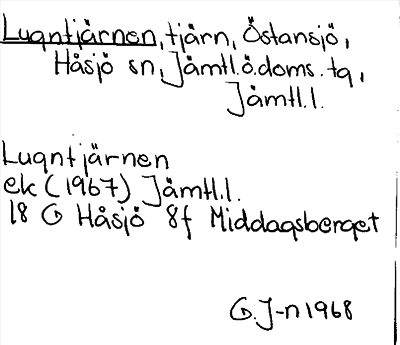 Lugntjärnen, tjärn, Östansjö,
Håsjö sn, Jämtl.ö.doms.tg,
Jämtl.l.
Lugntjärnen
ek (1967) Jämtl.l.
18 G Håsjö 8f Middagsberget
G.J-n 1968